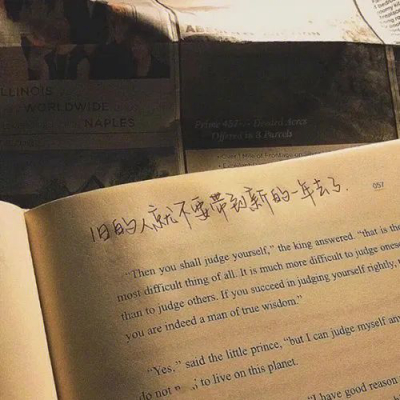 ILLINOIS
WORLDWIDE
NAPLES
旧的人就不要带到新的一年去了.
057
"Then you shall judge yourself," the king answered. "that is the
most difficult thing of all. It is much more difficult to judge
than to judge others. If you succeed in judging yourself rightly,
you are indeed a man of true wisdom."
"Yes," said the little prince, "but I can judge myself
do not to live on this planet.
"I have good reason